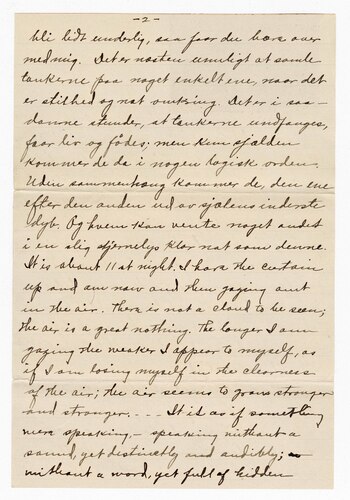 - 2 -
bli lidt underlig, saa faar du bære over
med mig. Det er næsten umuligt at samle
tankerne paa noget enkelt ene, naar det
er stilhed og nat omkring. Det er i saa-
danne stunder, at tankerne undfanges,
faar liv og fødes; men kun sjælden
kommer de da i nogen logisk orden.
Uden sammenhæng kommer de, den ene
efter den anden ud av sjælens inderste
dyb. Og hvem kan vente noget andet
i en slig stjernelys klar nat som denne.
It is about 11 at night. I have the curtain
up and am now and then gazing out
in the air. There is not a cloud to be seen;
the air is a great nothing. The longer I am
gazing the weaker I appear to myself, as
if I am losing myself in the clearness
of the air; the air seems to grow stronger
and stronger, - - - It is as if something
were speaking, - speaking without a
sound, yet distinctly and audibly; -
without a word, yet full of hidden